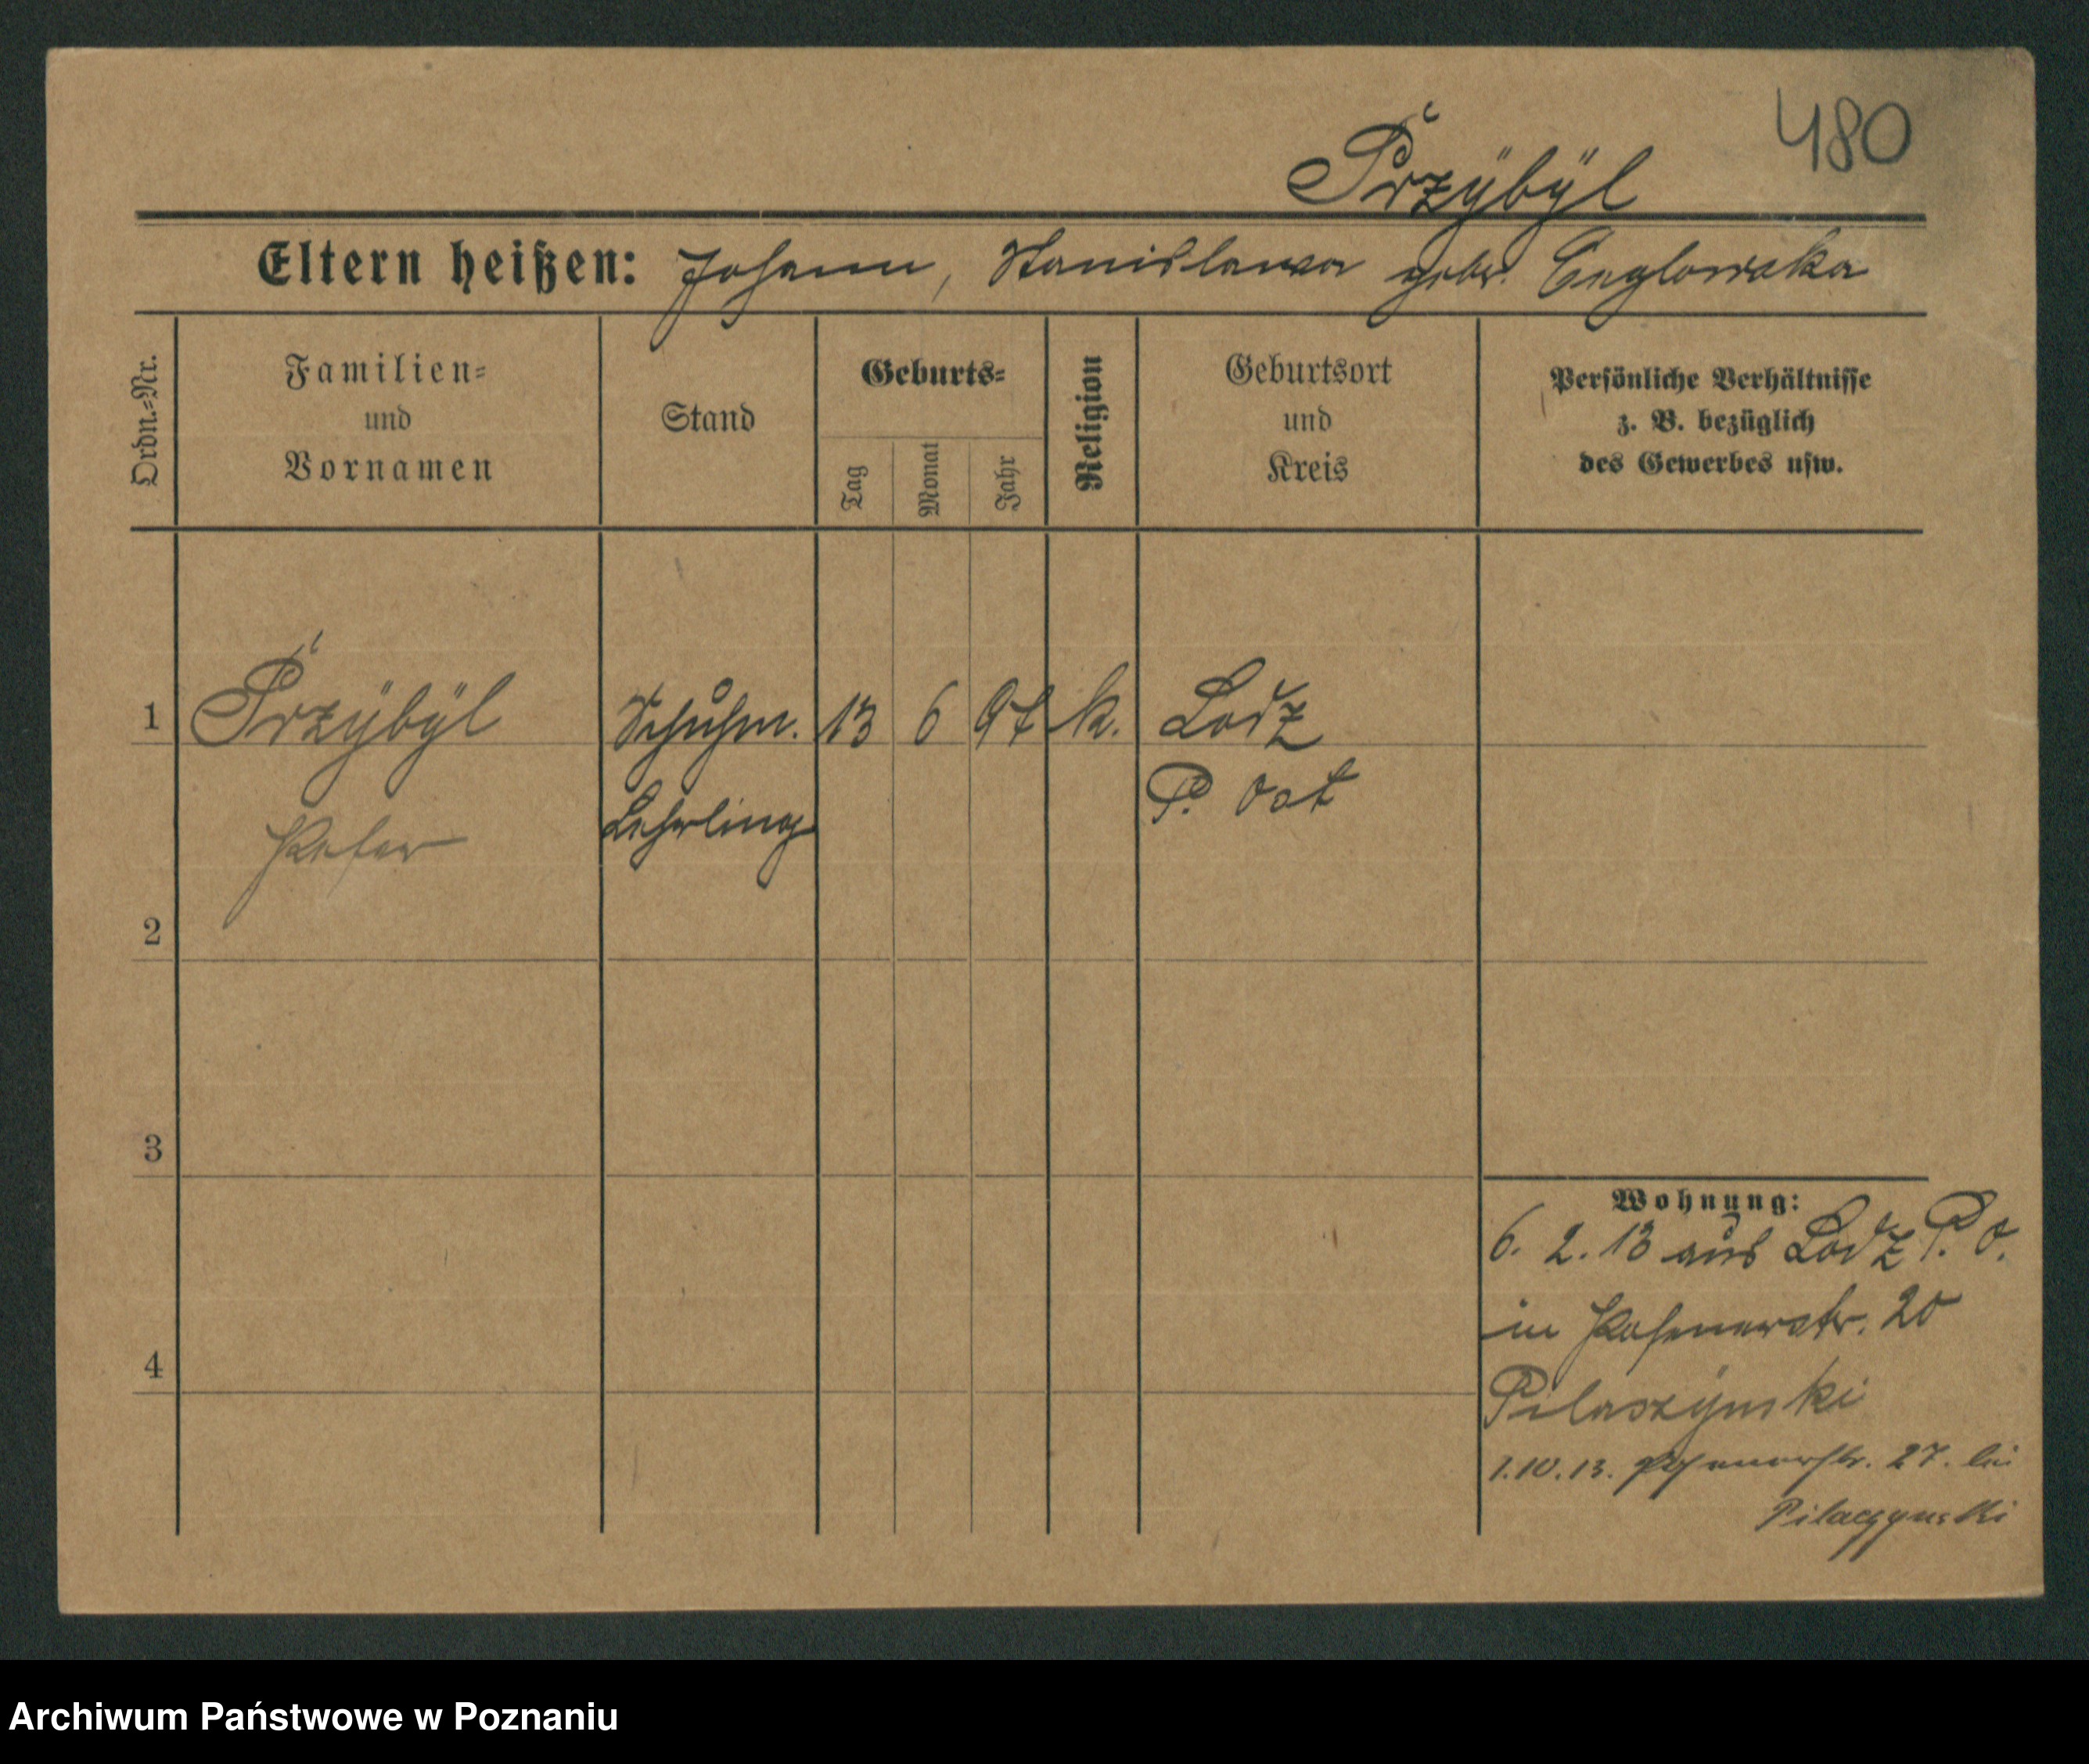 480
Przÿbÿl
Eltern heißen: Johann, Stanislawa gebr. Ceglowska
Ordn.=Nr.
Familien=
und
Vornamen
Stand
Geburts=
Tag
Monat
Jahr
Religion
Geburtsort
und
Kreis
Persönliche Verhältnisse
z. B. bezüglich
des Gewerbes usw.
1 Przÿbÿl Schuhm. 13 6 97 k. Lodz
Peter Lehrling P. Ost
2
3
Wohnung:
6. 2. 13 aus Lodz P. O.
in Posenerstr. 20
4
Pilaszÿnski
1.10.13. Posenerstr. 27. bei
Pilaczynski
Archiwum Państwowe w Poznaniu